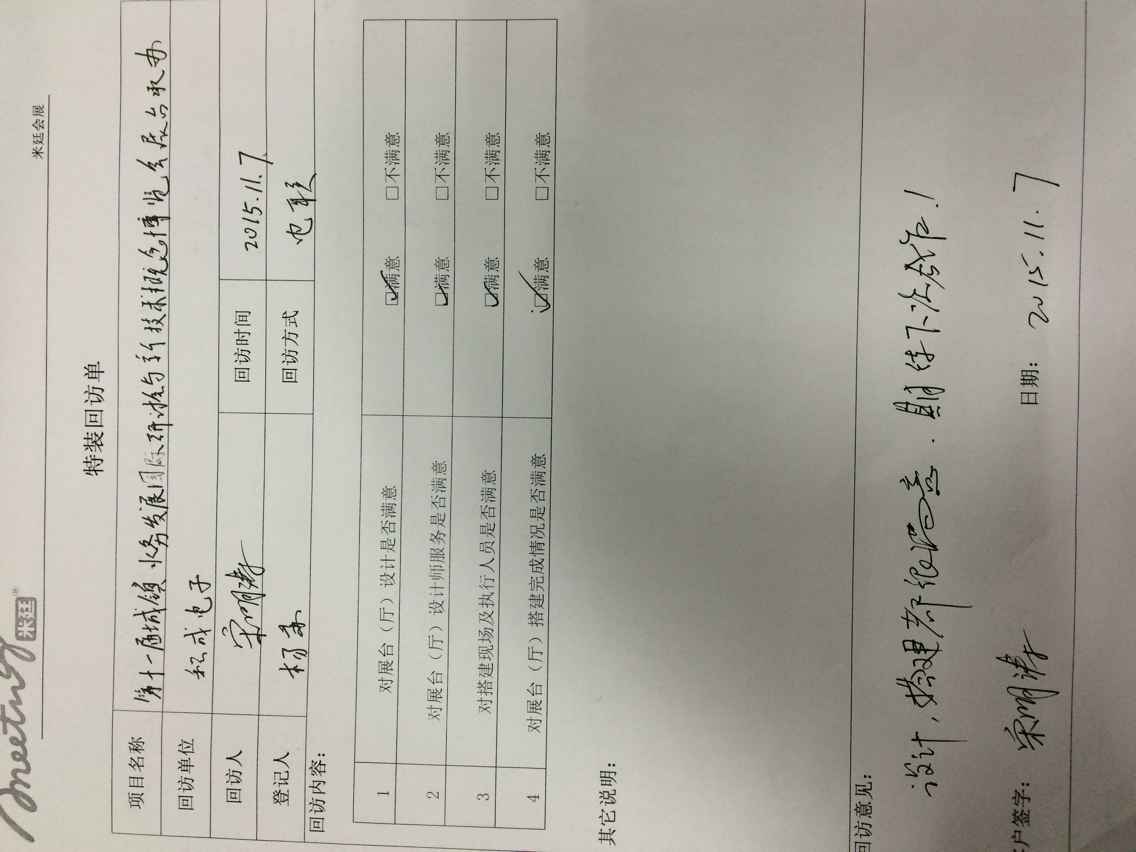 meeting 米廷
米廷会展
特装回访单
项目名称 第十一届城镇水务发展国际研讨会与新技术设备博览会展台承办
回访单位 积成电子
回访人 宋明涛 回访时间 2015.11.7
登记人 杨 回访方式 电联
回访内容：
1 对展台（厅）设计是否满意 ☑满意 □不满意
2 对展台（厅）设计师服务是否满意 ☑满意 □不满意
3 对搭建现场及执行人员是否满意 ☑满意 □不满意
4 对展台（厅）搭建完成情况是否满意 ☑满意 □不满意
其它说明：
回访意见：
设计，搭建都很满意．期待下次合作！
客户签字： 宋明涛 日期： 2015.11.7